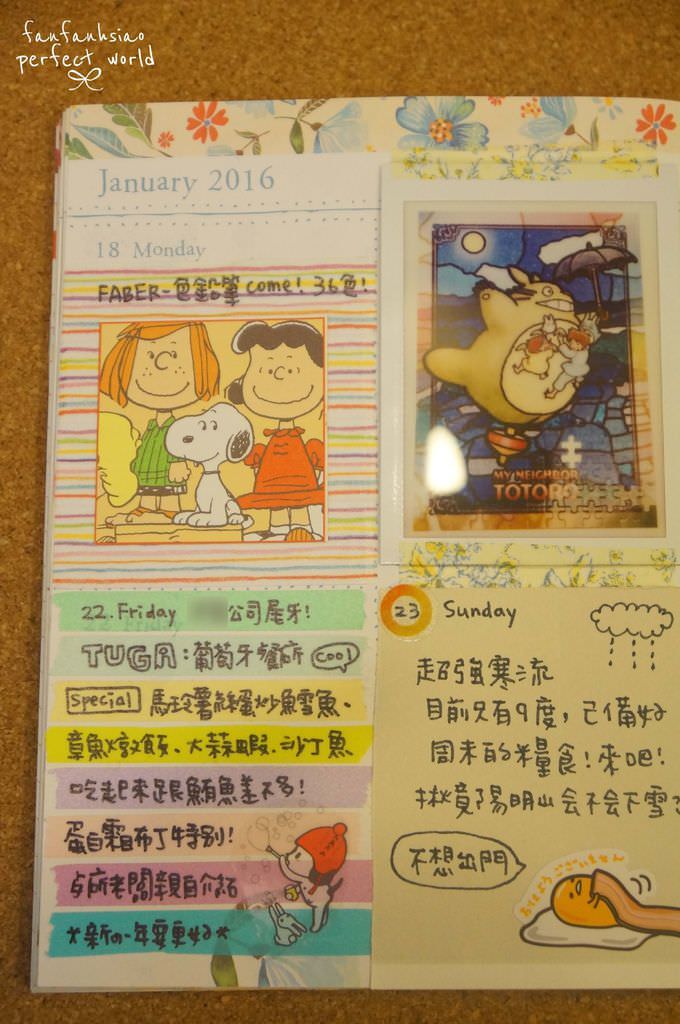 fanfanhsiao
perfect world
January 2016
18 Monday
FABER-色鉛筆 come! 36色!
MY NEIGHBOR
TOTORO
22. Friday 公司尾牙!
TUGA:葡萄牙餐廳 COOL
Special 馬玲薯絲蛋炒鱈魚、
章魚燉飯、大蒜蝦、沙丁魚
吃起來跟鮪魚差不多!
蛋白霜布丁特別!
老闆親自介紹
*新的一年要更好*
23 Sunday
超強寒流
目前只有9度,已備好
周末的糧食!來吧!
究竟陽明山会不会下雪?
不想出門
おはようございません